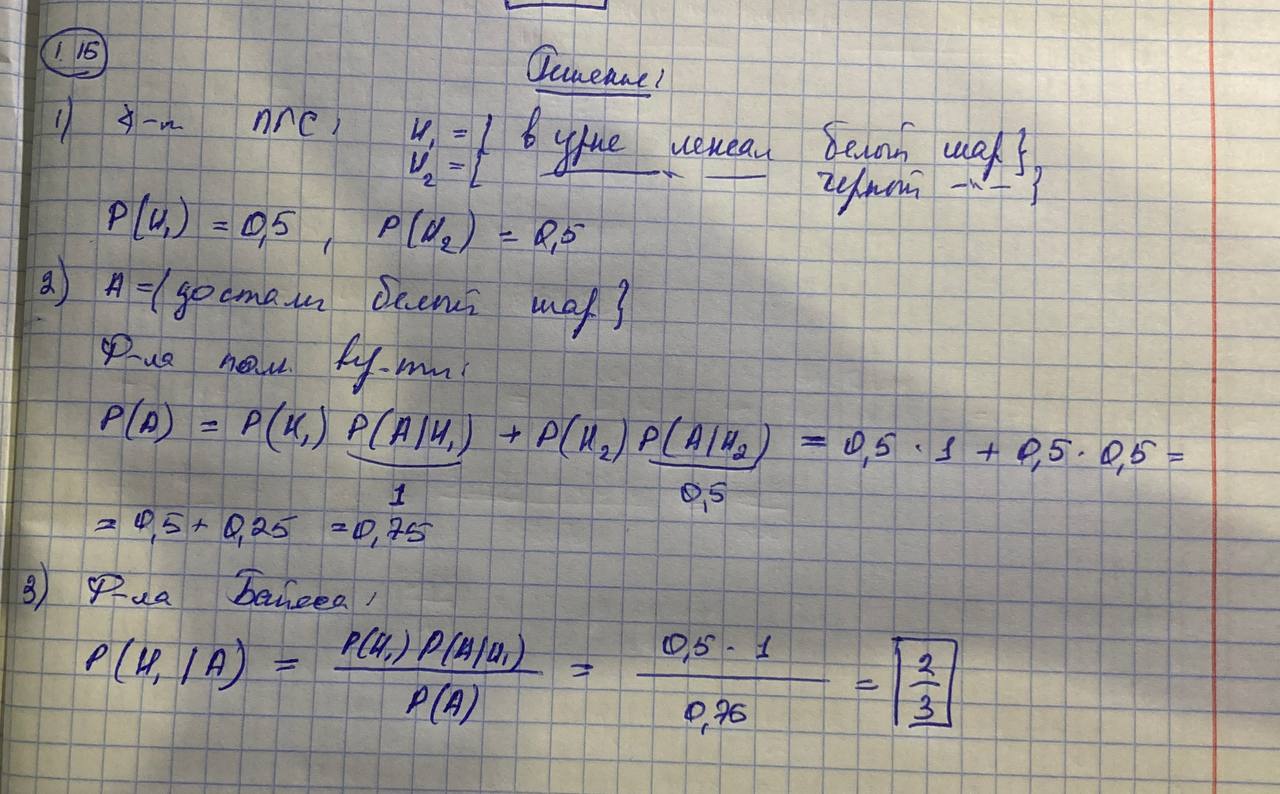 1.15
Решение:
1) Ф-л ПГС: H₁ = { в урне лежал белый шар},
H₂ = { черный –"– }
P(H₁) = 0,5 , P(H₂) = 0,5
2) A = { достали белый шар}
Ф-ла полн. вер-ти:
P(A) = P(H₁) P(A|H₁) + P(H₂) P(A|H₂) = 0,5 · 1 + 0,5 · 0,5 =
1 0,5
= 0,5 + 0,25 = 0,75
3) Ф-ла Байеса:
P(H₁ | A) = P(H₁) P(A|H₁) / P(A) = 0,5 · 1 / 0,75 = 2/3